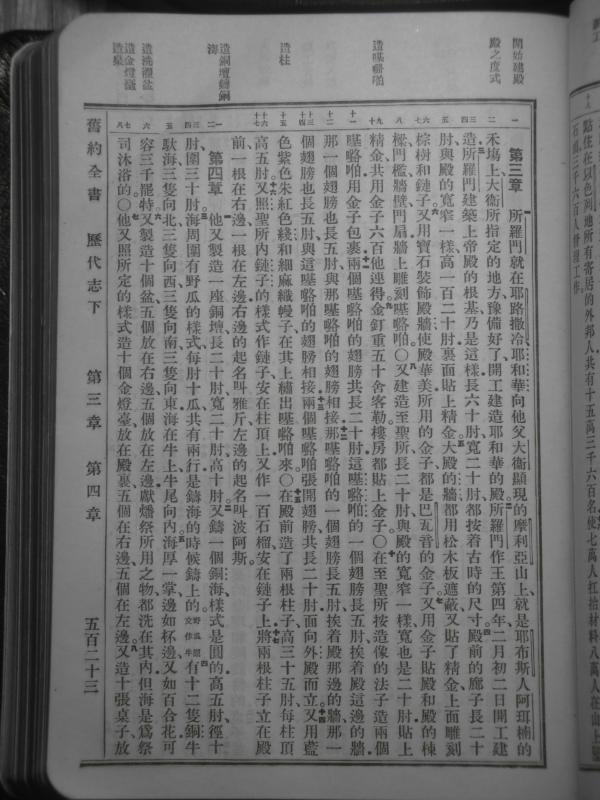 開始建殿
殿之度式
造柱
造銅壇鑄銅海
造洗濯盆
造金燈臺
第三章 所羅門就在耶路撒冷耶和華向他父大衛顯現的摩利亞山上就是耶布斯人阿珥楠的
禾塲上大衛所指定的地方豫備好了開工建造耶和華的殿所羅門作王第四年二月初二日開工建
造所羅門建築上帝殿的根基乃是這樣長六十肘寬二十肘都按着古時的尺寸殿前的廊子長二十
肘與殿的寬窄一樣高一百二十肘裏面貼上精金大殿的牆都用松木板遮蔽又貼了精金上面雕刻
棕樹和鏈子又用寶石裝飾殿牆使殿華美所用的金子都是巴瓦音的金子又用金子貼殿和殿的棟
樑門檻牆壁門扇牆上雕刻啪〇又建造至聖所長二十肘與殿的寬窄一樣寬也是二十肘貼上
精金共用金子六百他連得金釘重五十舍客勒樓房都貼上金子〇在至聖所按造像的法子造兩個
啪用金子包裹兩個啪的翅膀共長二十肘這啪的一個翅膀長五肘挨着殿這邊的牆
那一個翅膀也長五肘與那啪的翅膀相接那啪的一個翅膀長五肘挨着殿那邊的牆那一
個翅膀也長五肘與這啪的翅膀相接兩個啪張開翅膀共長二十肘面向外殿而立又用藍
色紫色朱紅色綫和細麻織幔子在其上繡出啪來〇在殿前造了兩根柱子高三十五肘每柱頂
高五肘又照聖所內鏈子的樣式作鏈子安在柱頂上又作一百石榴安在鏈子上將兩根柱子立在殿
前一根在右邊一根在左邊右邊的起名叫雅斤左邊的起名叫波阿斯
第四章 他又製造一座銅壇長二十肘寬二十肘高十肘又鑄一個銅海樣式是圓的高五肘徑十
肘圍三十肘海周圍有野瓜的樣式每肘十瓜共有兩行是鑄海的時候鑄上的野瓜原文作牛有十二隻銅牛
馱海三隻向北三隻向西三隻向南三隻向東海在牛上牛尾向內海厚一掌邊如杯邊又如百合花可
容三千罷特又製造十個盆五個放在右邊五個放在左邊獻燔祭所用之物都洗在其內但海是爲祭
司沐浴的〇他又照所定的樣式造十個金燈臺放在殿裏五個在右邊五個在左邊又造十張桌子放
舊約全書 歷代志下 第三章 第四章 五百二十三
點住在以色列地所有寄居的外邦人共有十五萬三千六百名使七萬人扛抬材料八萬人在山上鑿
石頭三千六百人督理工作